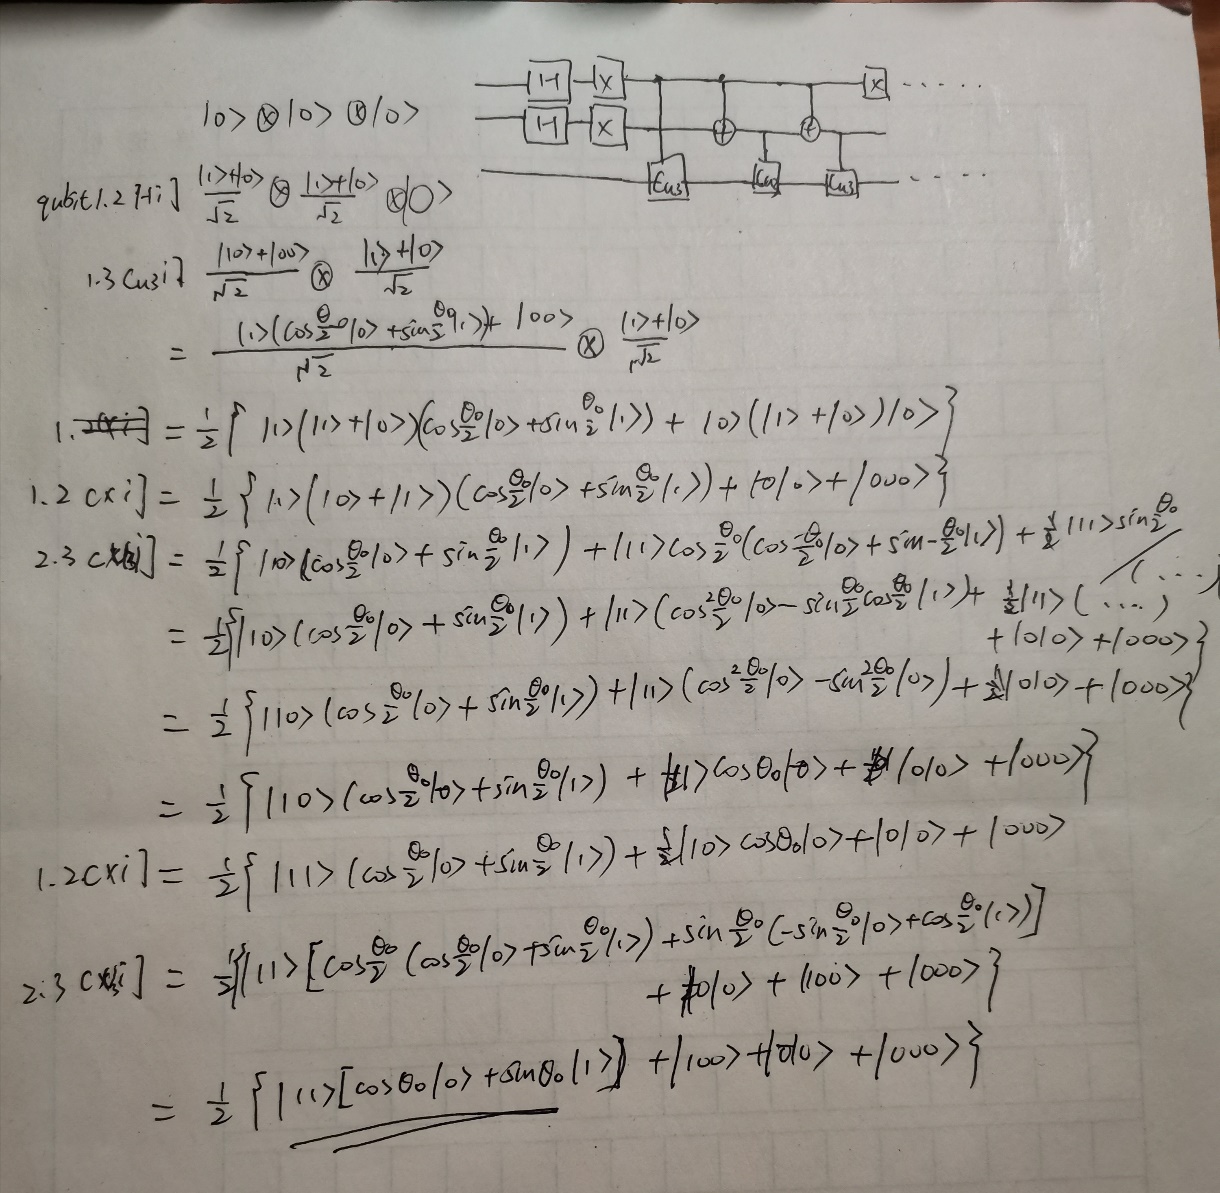 |0> ⊗ |0> ⊗ |0>
H X X
H X
Cu3 Cu3 Cu3
qubit1.2 Hi] (|1>+|0>)/√2 ⊗ (|1>+|0>)/√2 ⊗ |0>
1.3 Cu3i] (|10>+|00>)/√2 ⊗ (|1>+|0>)/√2
= (|1>(cos θ0/2 |0> + sin θ0/2 |1>) + |00>)/√2 ⊗ (|1>+|0>)/√2
1. = 1/2 { |1>(|1>+|0>)(cos θ0/2 |0> + sin θ0/2 |1>) + |0>(|1>+|0>)|0> }
1.2 cxi] = 1/2 { |1>(|0>+|1>)(cos θ0/2 |0> + sin θ0/2 |1>) + |010> + |000> }
2.3 = 1/2 { |10>(cos θ0/2 |0> + sin θ0/2 |1>) + |11> cos θ0/2 (cos -θ0/2 |0> + sin -θ0/2 |1>) + |11> sin θ0/2 (....)
= 1/2 { |10>(cos θ0/2 |0> + sin θ0/2 |1>) + |11>(cos² θ0/2 |0> - sin θ0/2 cos θ0/2 |1>) + |11>(....)
+ |010> + |000> }
= 1/2 { |10>(cos θ0/2 |0> + sin θ0/2 |1>) + |11>(cos² θ0/2 |0> - sin² θ0/2 |0>) + |010> + |000> }
= 1/2 { |10>(cos θ0/2 |0> + sin θ0/2 |1>) + |11> cosθ0 |0> + |010> + |000> }
1.2cxi] = 1/2 { |11>(cos θ0/2 |0> + sin θ0/2 |1>) + |10> cosθ0 |0> + |010> + |000>
2.3 = 1/2 { |11>[cos θ0/2 (cos θ0/2 |0> + sin θ0/2 |1>) + sin θ0/2 (-sin θ0/2 |0> + cos θ0/2 |1>)]
+ |010> + |100> + |000> }
= 1/2 { |11>[cosθ0|0> + sinθ0|1>] + |100> + |010> + |000> }